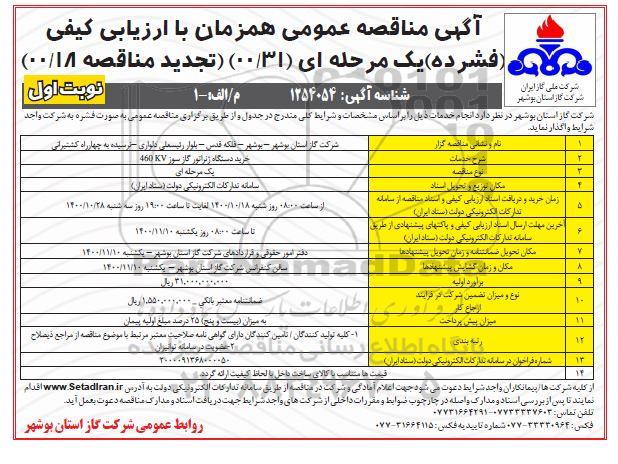 آگهی مناقصه عمومی همزمان با ارزیابی کیفی
(فشرده)یک مرحله ای (۰۰/۳۱) (تجدید مناقصه ۰۰/۱۸)
شرکت ملی گاز ایران
شرکت گاز استان بوشهر
شناسه آگهی: ۱۲۵۴۰۵۴ م/الف:۱۰۰
نوبت اول
شرکت گاز استان بوشهر در نظر دارد انجام خدمات ذیل را بر اساس مشخصات و شرایط کلی مندرج در جدول و از طریق برگزاری مناقصه عمومی به صورت فشرده به شرکت واجد
شرایط واگذار نماید.
۱ نام و نشانی مناقصه گزار شرکت گاز استان بوشهر – بوشهر – فلکه قدس – بلوار رئیسعلی دلواری – نرسیده به چهارراه کشتیرانی
۲ شرح خدمات خرید دستگاه ژنراتور گاز سوز 460 KV
۳ نوع مناقصه یک مرحله ای
۴ مکان توزیع و تحویل اسناد سامانه تدارکات الکترونیکی دولت (ستاد ایران)
۵ زمان خرید و دریافت اسناد ارزیابی کیفی و اسناد مناقصه از سامانه
تدارکات الکترونیکی دولت (ستاد ایران) از ساعت ۰۸:۰۰ روز شنبه ۱۴۰۰/۱۰/۱۸ لغایت تا ساعت ۱۹:۰۰ روز سه شنبه ۱۴۰۰/۱۰/۲۸
۶ آخرین مهلت ارسال اسناد ارزیابی کیفی و پاکتهای پیشنهادی از طریق
سامانه تدارکات الکترونیکی دولت (ستاد ایران) تا ساعت ۰۸:۰۰ روز یکشنبه ۱۴۰۰/۱۱/۱۰
۷ مکان تحویل ضمانتنامه و زمان تحویل پیشنهادها دفتر امور حقوقی و قراردادهای شرکت گاز استان بوشهر – یکشنبه ۱۴۰۰/۱۱/۱۰
۸ مکان و زمان گشایش پیشنهادها سالن کنفرانس شرکت گاز استان بوشهر – یکشنبه ۱۴۰۰/۱۱/۱۰
۹ برآورد اولیه ۳۱,۰۰۰,۰۰۰,۰۰۰ ریال
۱۰ نوع و میزان تضمین شرکت در فرآیند
ارجاع کار ضمانتنامه معتبر بانکی – ۱,۵۵۰,۰۰۰,۰۰۰ ریال
۱۱ میزان پیش پرداخت به میزان (بیست و پنج) ۲۵ درصد مبلغ اولیه پیمان
۱۲ رتبه بندی ۱- کلیه تولید کنندگان / تامین کنندگان دارای گواهی نامه صلاحیت معتبر مرتبط با موضوع مناقصه از مراجع ذیصلاح
۲-عضویت در سامانه توانیران
۱۳ شماره فراخوان در سامانه تدارکات الکترونیکی دولت (ستاد ایران) ۲۰۰۰۰۹۱۳۶۸۰۰۰۰۵۰
۱۴ قیمت ها متناسب با کالای ساخت داخل با لحاظ کیفیت ارائه گردد
از کلیه شرکت ها/ پیمانکاران واجد شرایط دعوت می شود جهت اعلام آمادگی و شرکت در مناقصه از طریق سامانه تدارکات الکترونیکی دولت به آدرس www.SetadIran.ir اقدام
نمایند تا پس از بررسی اسناد و مدارک واصله در چارچوب ضوابط و مقررات داخلی از شرکت های واجد شرایط جهت دریافت اسناد و مدارک مناقصه دعوت بعمل آید.
تلفن تماس: ۰۷۷۳۳۳۳۷۶۰۳-۰۷۷۳۱۶۶۴۲۹۱
فکس: ۰۷۷-۳۳۳۳۰۹۶۴ شماره تاییدیه فکس: ۰۷۷-۳۱۶۶۴۱۱۵
روابط عمومی شرکت گاز استان بوشهر